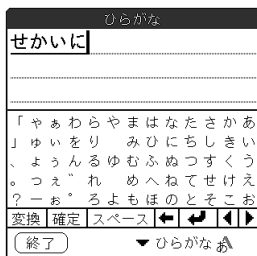 ひらがな
せかいに
「 ゃ ぁ わ ら や ま は な た さ か あ
」 ゅ ぃ を り み ひ に ち し き い
、 ょ ぅ ん る ゆ む ふ ぬ つ す く う
。 っ ぇ ゛ れ め へ ね て せ け え
？ ー ぉ ゜ ろ よ も ほ の と そ こ お
変換 確定 スペース
終了 ひらがな あA